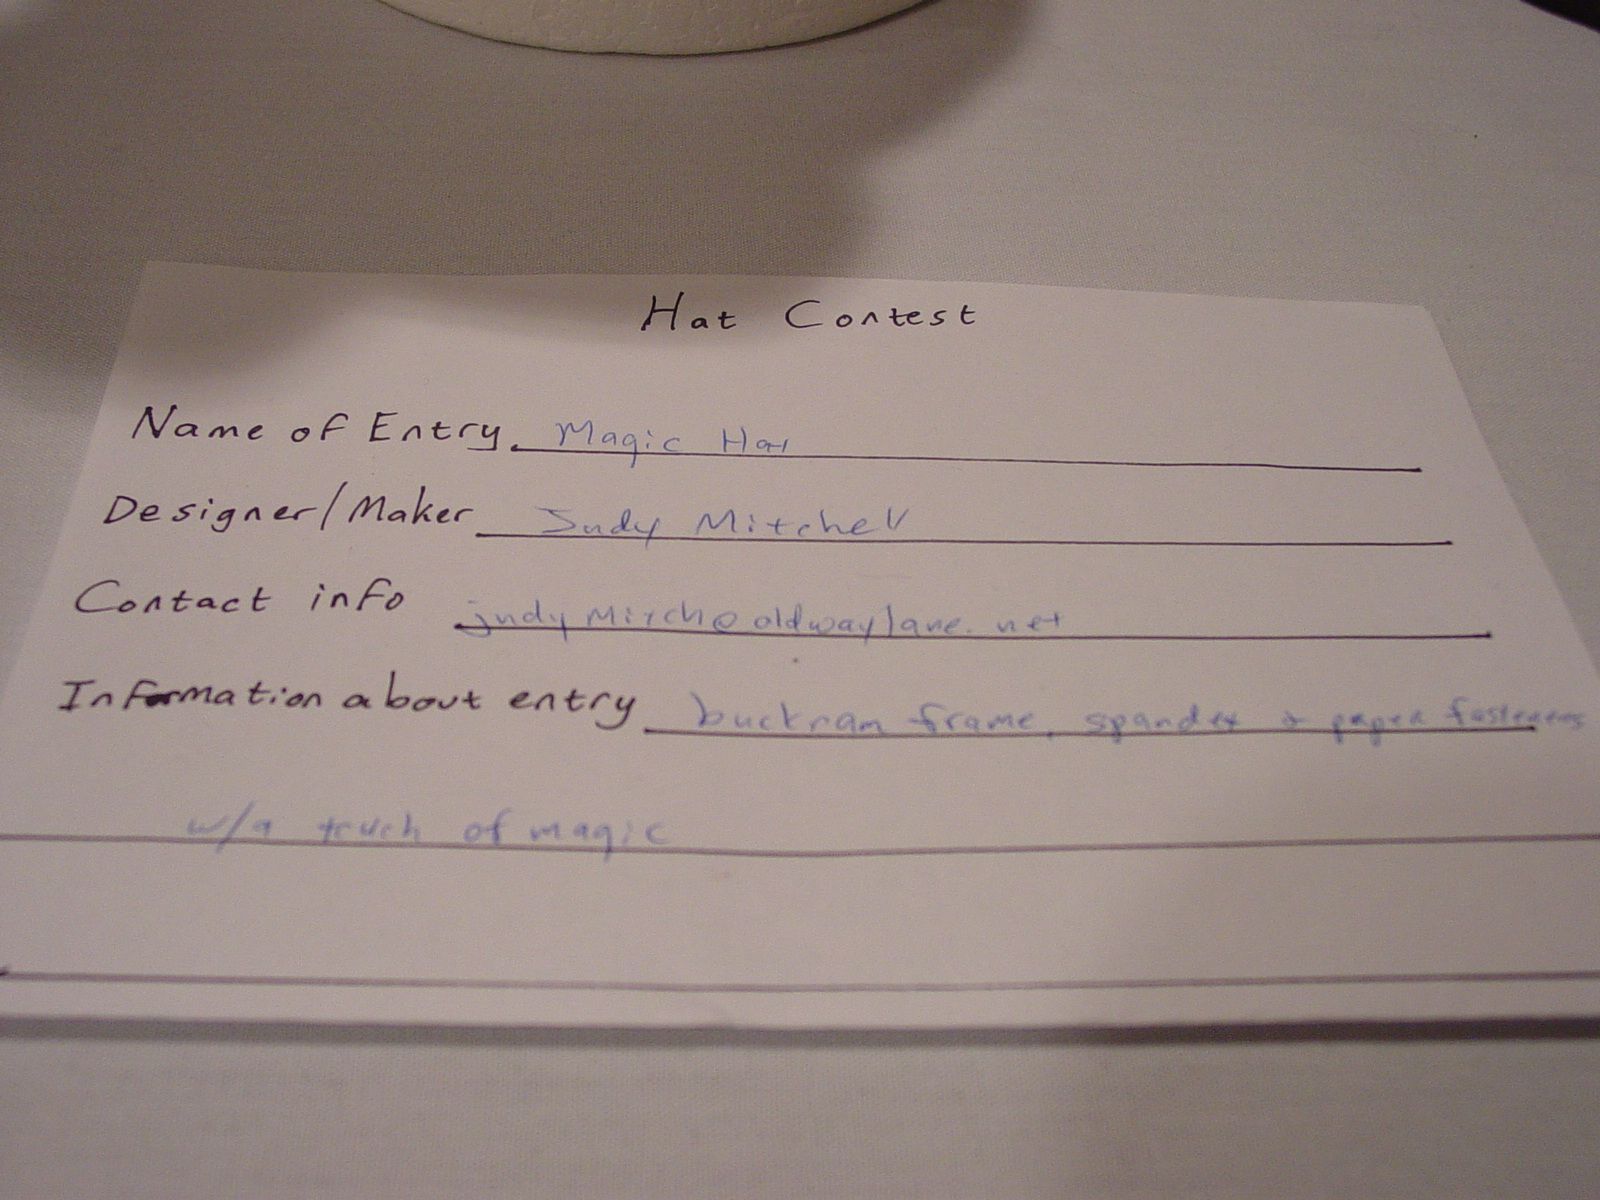 Hat Contest
Name of Entry Magic Hat
Designer/Maker Judy Mitchell
Contact info judymitch@oldwaylane.net
Information about entry buckram frame, spandex + paper fasteners
w/a touch of magic